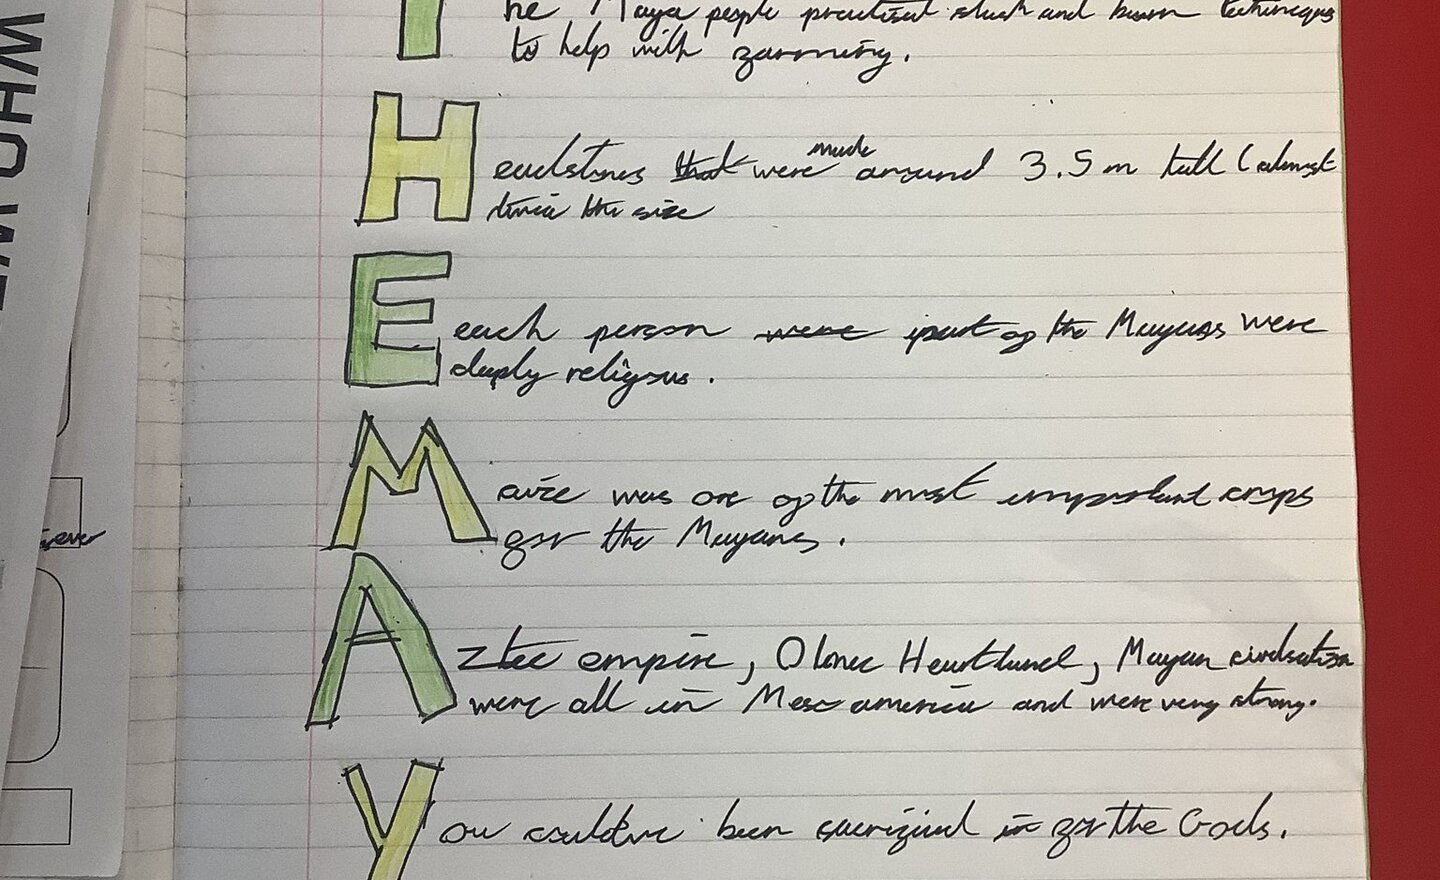 The Maya people practised slash and burn techniques
to help with farming.
Headstones that were made around 3.5m tall (almost
twice the size
Each person were part of the Mayans were
deeply religous.
Maize was one of the most important crops
for the Mayans.
Aztec empire, Olmec Heartland, Mayan civilisation
were all in Mesoamerica and were very strong.
You could've been sacrificed in for the Gods.